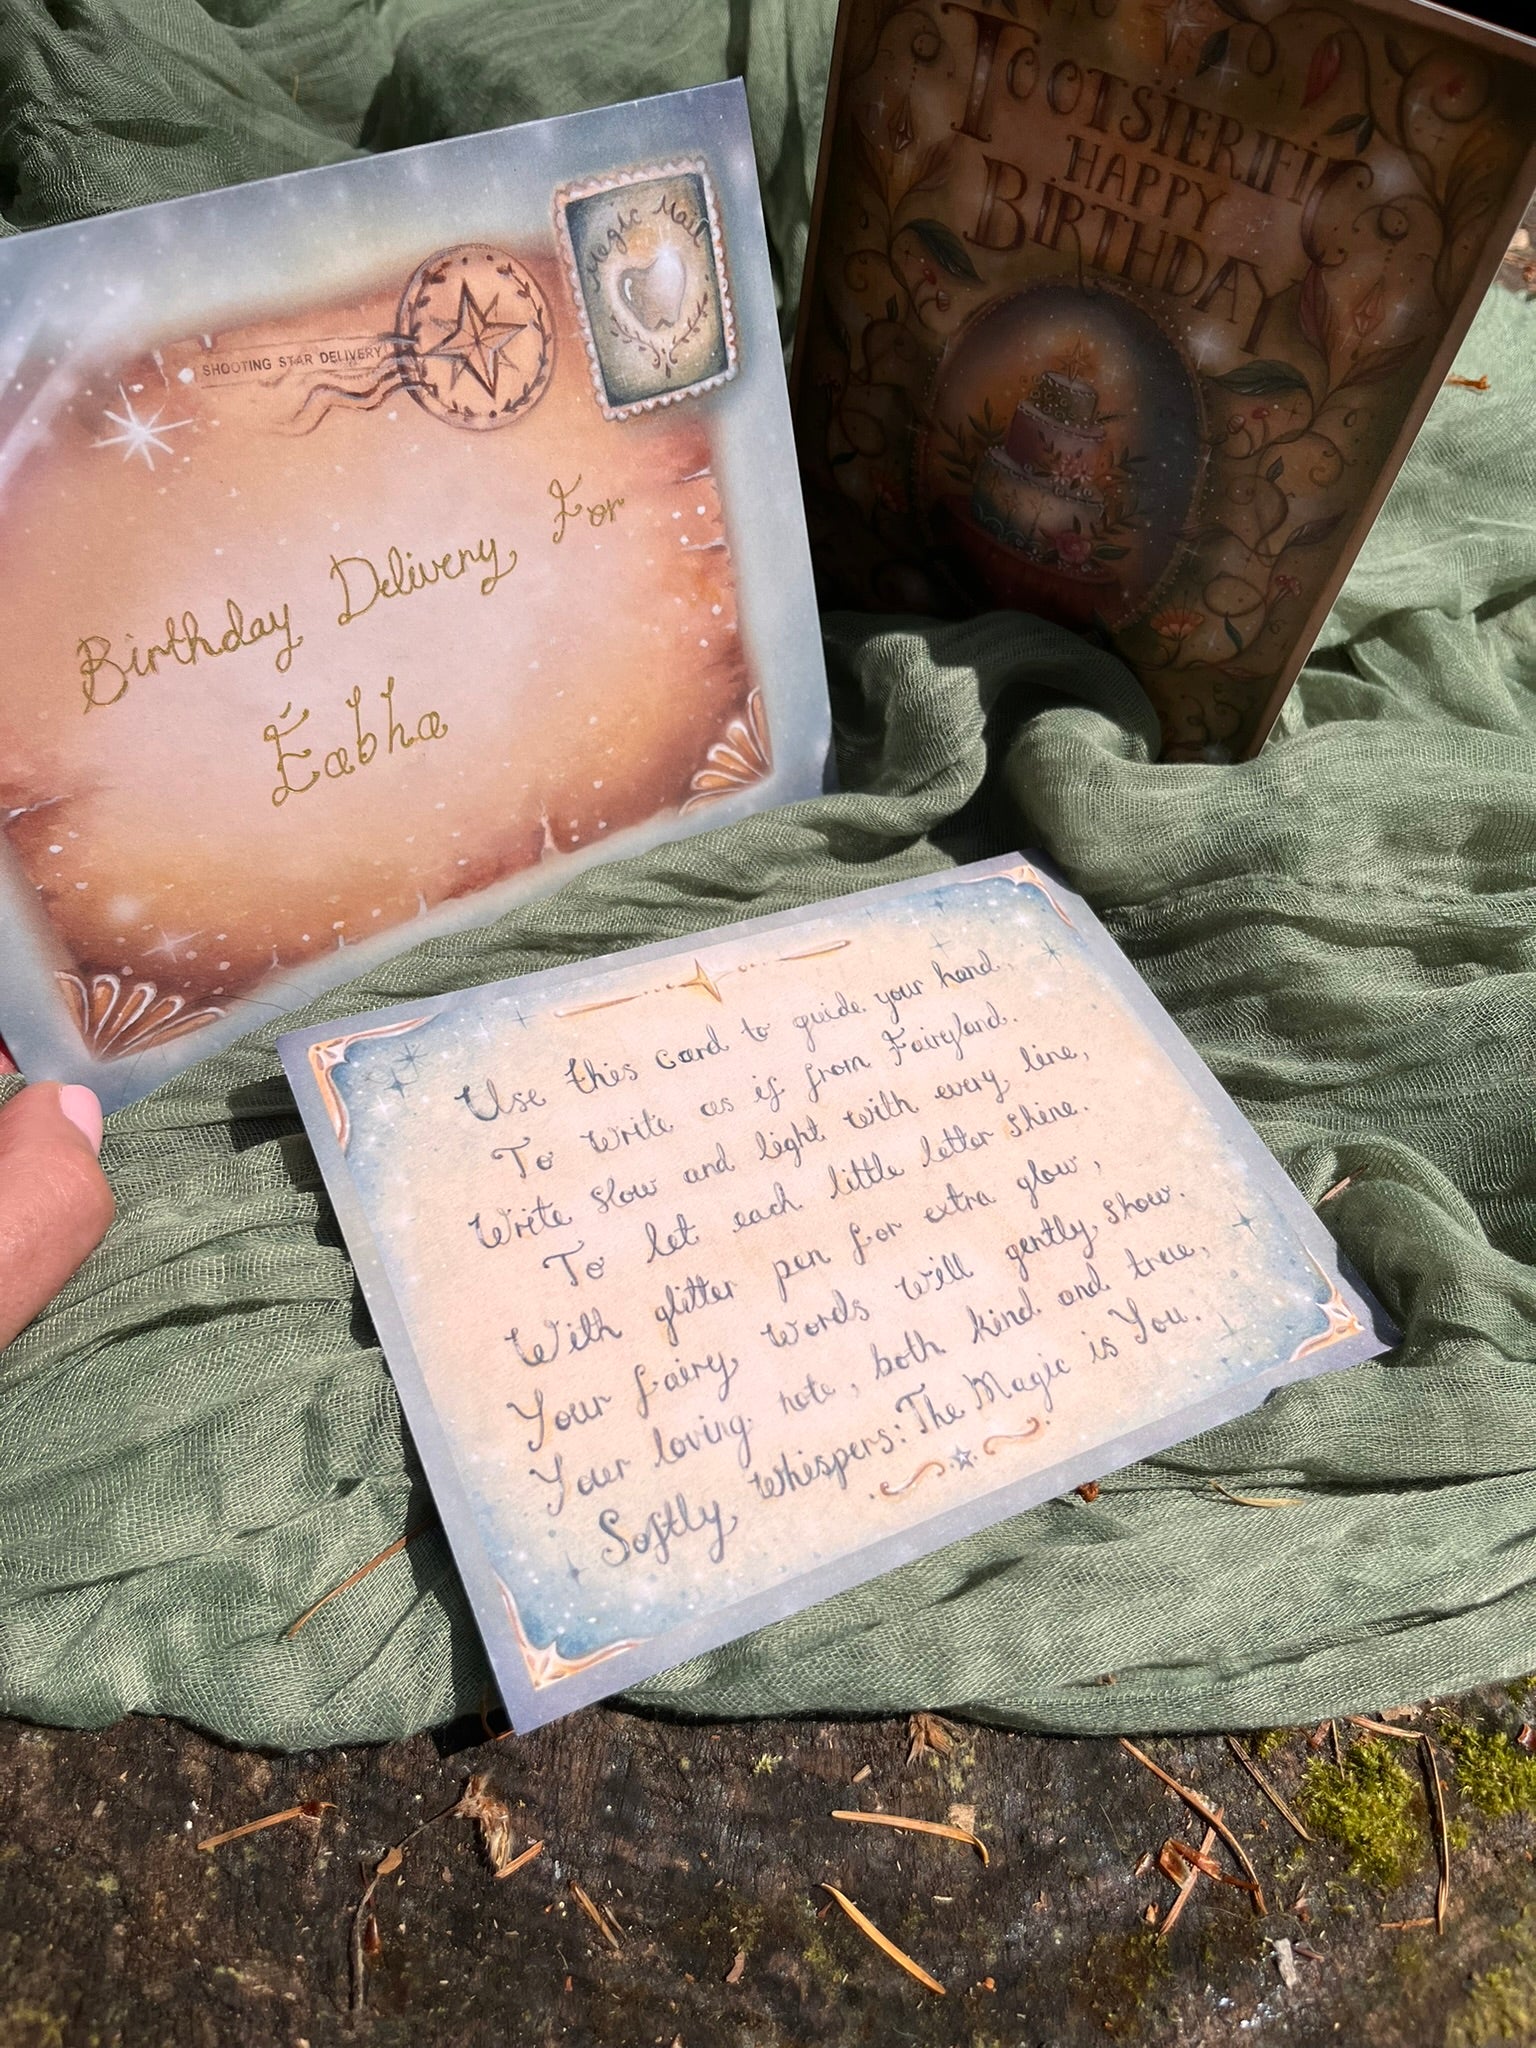 SHOOTING STAR DELIVERY
Magic Mail
Birthday Delivery For
Éabha
TOOTSIERIFIC
HAPPY
BIRTHDAY
Use this card to guide your hand,
To write as if from Fairyland.
Write slow and light with every line,
To let each little letter shine.
With glitter pen for extra glow,
Your fairy words will gently show.
Your loving note, both kind and true,
Softly Whispers: The Magic is You.